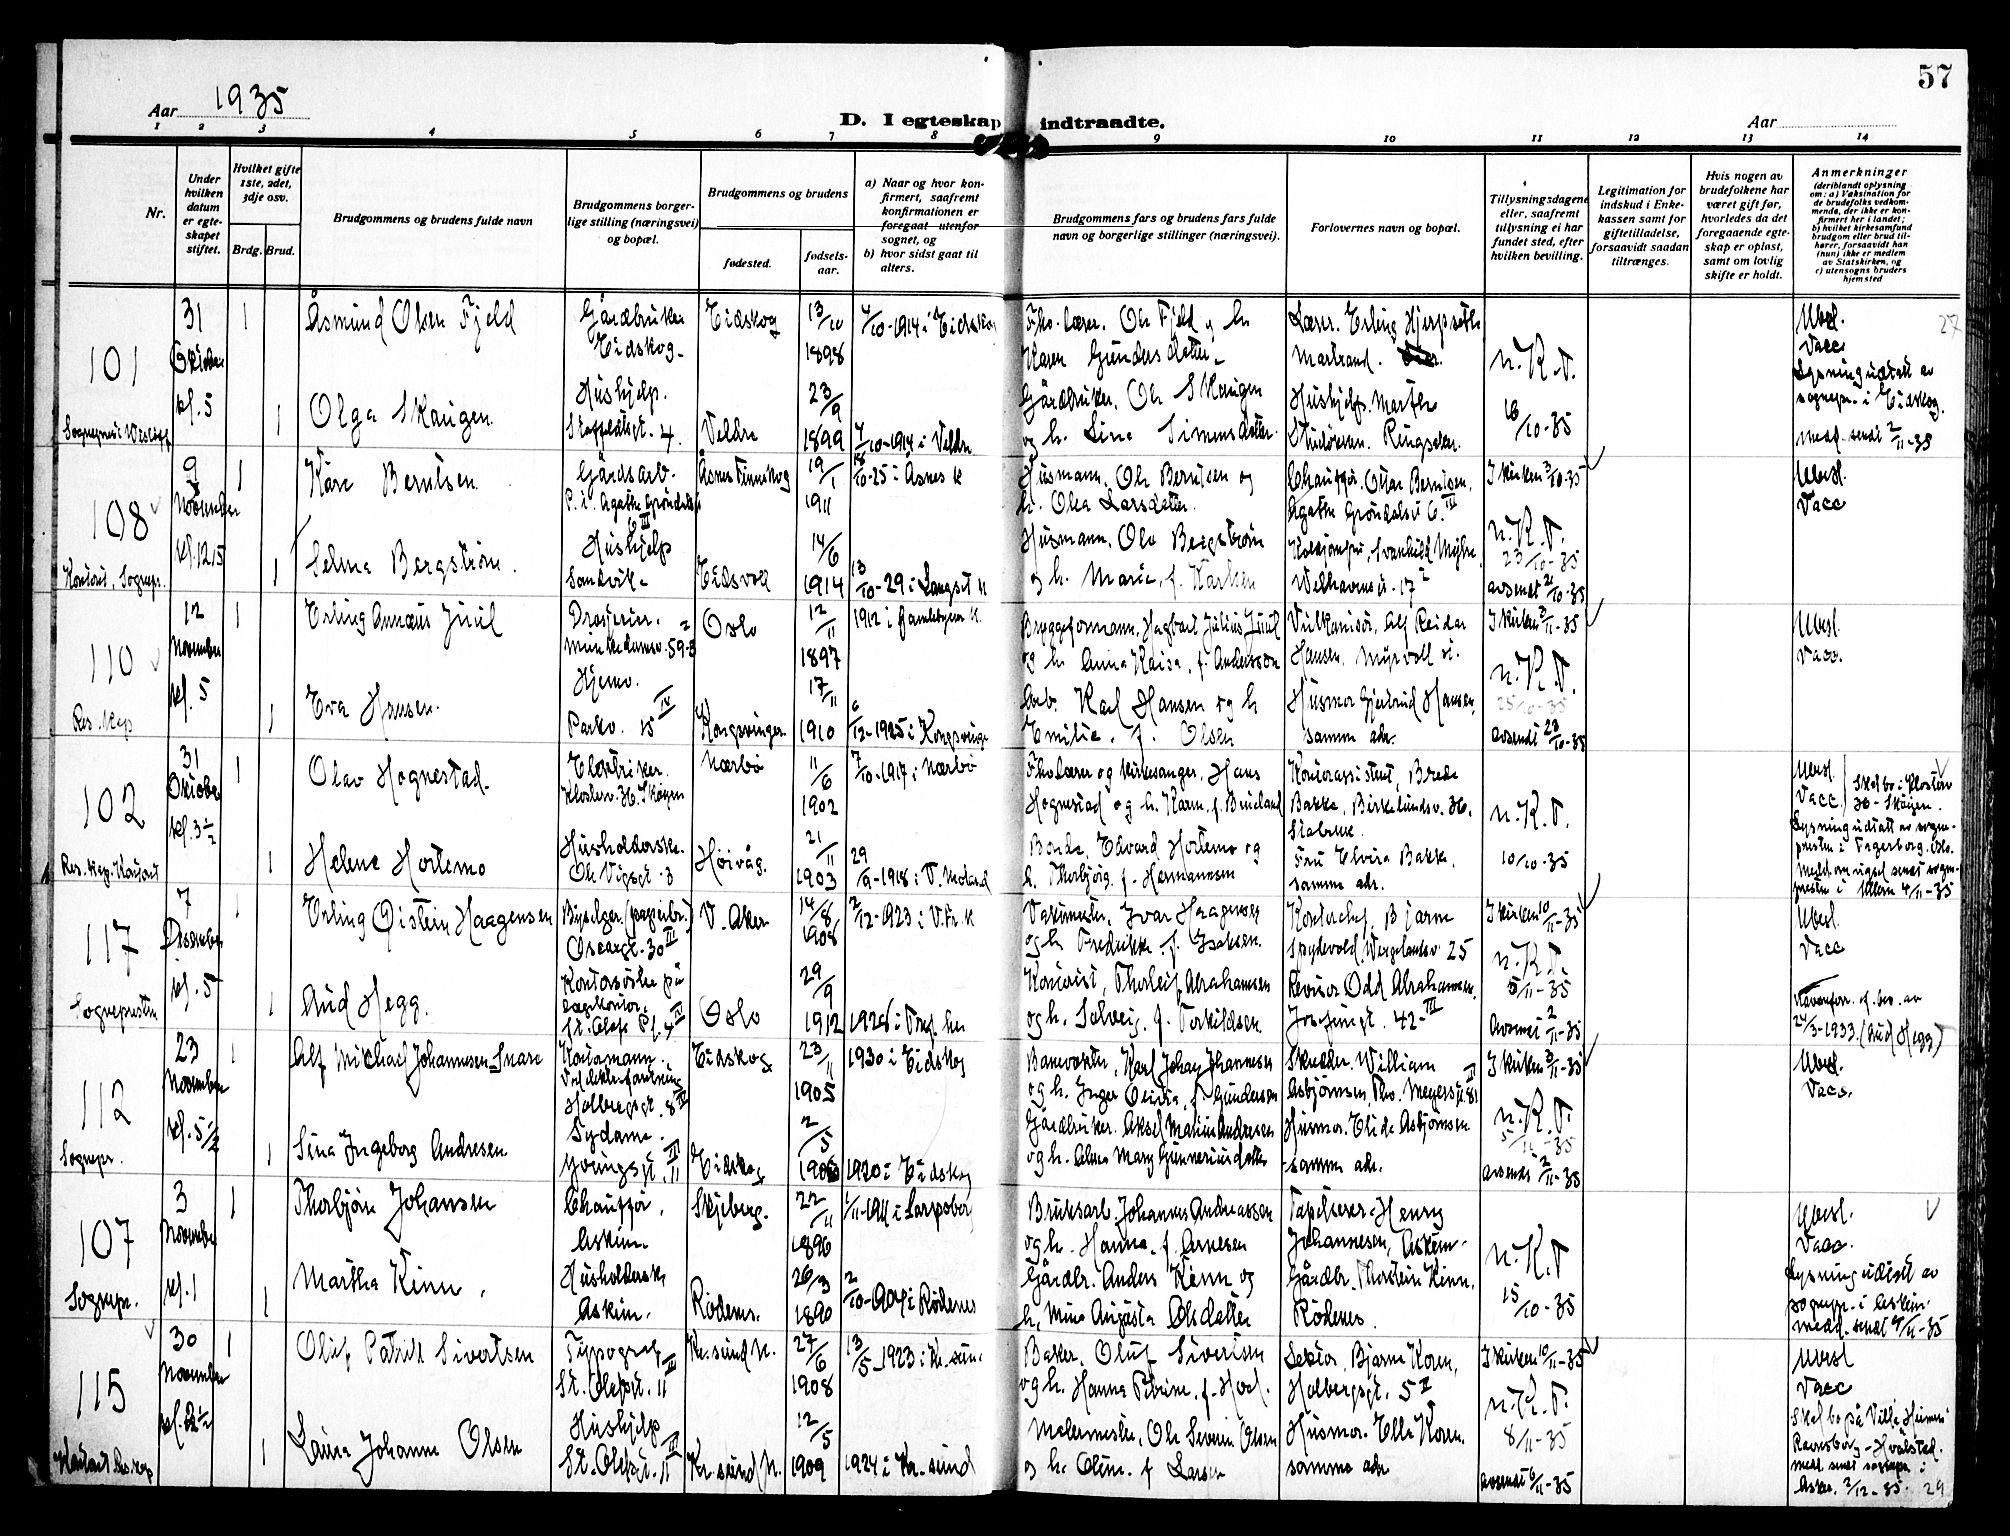 57
Aar 1935
D. I egteskap indtraadte.
Aar
1 2 3 4 5 6 7 8 9 10 11 12 13 14
Nr.
Under hvilken datum er egteskapet stiftet.
Hvilket gifte 1ste, 2det, 3dje osv.
Brdg. Brud.
Brudgommens og brudens fulde navn
Brudgommens borgerlige stilling (næringsvei) og bopæl.
Brudgommens og brudens
fødested.
fødselsaar.
a) Naar og hvor konfirmert, saafremt konfirmationen er foregaat utenfor sognet, og
b) hvor sidst gaat til alters.
Brudgommens fars og brudens fars fulde navn og borgerlige stillinger (næringsvei).
Forlovernes navn og bopæl.
Tillysningsdagene eller, saafremt tillysning ei har fundet sted, efter hvilken bevilling.
Legitimation for indskud i Enkekassen samt for giftetilladelse, forsaavidt saadan tiltrænges.
Hvis nogen av brudefolkene har været gift før, hvorledes da det foregaaende egteskap er opløst, samt om lovlig skifte er holdt.
Anmerkninger
(deriblandt oplysning om: a) Vaksination for de brudefolks vedkommende, der ikke er konfirmert her i landet; b) hvilket kirkesamfund brudgom eller brud tilhører, forsaavidt han (hun) ikke er medlem av Statskirken, og c) utensogns bruders hjemsted
101
31 Oktober kl. 5
1 Åsmund Olsen Fjeld
Gårdbruker Eidskog
Eidskog
13/10 1898
4/10-1914 i Eidskog
Ole Fjeld og h.
Karen Gundersdatter
Lærer. Erling Hjerpseth
n.K.T.
16/10-35
Ubesl.
Vacc
Lysning udtatt av sognepr. i Eidskog.
Med. sendt 2/11-35
27
1 Olga Skaugen
Hushjelp.
4.
Veldre
23/9 1899
/10-1914 i Veldre
Gårdbruker. Ole Skaugen og h. Lina Simensdatter
Hushjelp. Marthe
108
9 November kl. 12.15
1 Kåre Berntsen
Gårdsarb.
Åsnes Finnskog
19/1 1911
18/10-25 i Åsnes k
Husmann. Ole Berntsen og h. Olea Larsdatter.
Chauffør. Ottar Berntsen,
Agathe Grøndalsgt 6. III
I kirken 3/10-35
n.K.T.
23/10-35
avsendt 21/10-35
Ubesl.
Vacc
Kontoret, Sognepr.
1 Selma Bergstrøm.
Hushjelp
Sandvik
Eidsvoll
14/6 1914
13/10-29 i Langset k
Husmann, Ole Bergstrøm og h. Marie, f. Karlsen
Welhavensgt. 17 I
110
12 November kl. 5
Res. kap
1 Erling Annæus Juul
Munkedamsv. 59 B
Oslo
12/11 1897
1912 i Gamlebyen k.
Bryggeformann, Hagbart Julius Juul og h. Anna Kaisa, f. Andersson
Vulkanisør, Alf Reidar Hansen, Myrvoll st.
I kirken 3/11-35
n.K.T.
25/10-35
avsendt 23/10-35
Ubesl.
Vacc.
1 Eva Hansen.
Hjemv.
Parkv. 15 IV
Kongsvinger
17/11 1910
6/12-1925 i Kongsvinger
Arb. Karl Hansen og h Emilie. f. Olsen
Husmor Gjertrud Hansen, samme adr.
102
31 Oktober kl. 3½
Res. kap. Kontoret
1 Olav Hognestad.
Elektriker.
Nærbø
11/6 1902
7/10-1917 i Nærbø
Lærer og kirkesanger, Hans Hognestad og h. Karen, f. Bueland
Kontorassistent, Brede Bakke, Birkelundsv. 40. Stabekk.
n.K.T.
10/10-35
Ubesl.
Vacc.
Skal bo i Klosterv 40 - Skøyen.
Lysning udtatt av sognepresten i Fagerborg. Oslo.
Meld. om vigsel sendt sognepresten i Ullern 4/11-35
1 Helene Hortemo
Husholderske.
Ole Vigsgt. 3
Høivåg.
21/11 1903
29/9-1918 i V. Moland
Bonde, Edvard Hortemo og h. Thorbjørg. f. Hermannsen
Fru Elvira Bakke samme adr.
117
7 Desember kl. 5
Sognepresten
1 Erling Øistein Haagensen
Byselger. (papirbr.)
Oscarsgt. 30 III
V. Aker
14/8 1908
2/12-1923 i V.Fr.k
Vaktmester, Ivar Haagensen og h. Fredrikke f. Isaksen.
Kontorchef, Bjarne Spydevold, Wergelandsv 25
I kirken 10/11-35
n.K.T.
5/11-35
avsendt 2/11-35
Ubesl.
Vacc
Navneforandr. ef. bev. av 24/3-1933. (Aud Hegg)
1 Aud Hegg.
Kontorsøster på
St. Olafs Pl. 4 IV
Oslo
29/9 1912
1926 i Tref. ker
Kontorist, Thorleif Abrahamsen og h. Solveig. f. Torkildsen.
Revisor Odd Abrahamsen, Josefinegt. 42 III
112
23 November kl. 5½
Sognepr.
1 Alf Mikhael Johannesen Snare
Kontormann.
Holbergsgt. 8 III
Eidskog
23/11 1905
1930 i Eidskog
Banevokter, Karl Johan Johannesen og h. Inger Olivia, f. Gundersen
Skredder. William Asbjørnsen, Tho. Meyersgt. 81 II
I kirken 3/11-35
n.K.T.
5/11-35
avsendt 2/11-35
Ubesl.
Vacc.
1 Sina Ingeborg Andresen
Sydame.
Youngsgt. 11 III
Eidskog
2/5 190
1920 i Eidskog
Gårdbruker. Aksel Marius Andresen og h. Alma Mary Gunneriusdatter
Husmor. Elida Asbjørnsen samme adr.
107
3 November kl. 1
Sognepr.
1 Thorbjørn Johansen
Chauffør, Askim
Skjeberg.
22/11 1896
1/11-1911 i Sarpsborg
Bruksarb. Johannes Andreassen og h. Hanna, f. Arnesen
Tapetserer Henry Johannesen, Askim
n.K.T
15/10-35
Ubesl.
Vacc.
Lysning udtatt av sognepr. i Askim.
Medd. sendt 4/11-35
1 Martha Kinn,
Husholdersk,
Askim.
Rødenes.
26/3 1890
2/10-1904 i Rødenes
Gårdbr. Anders Kinn og h, Mina Augusta Olsdatter
Gårdbr. Thorstein Kinn, Rødenes.
115
30 November kl.
Kontoret Res. kap
1 Oluf Patrick Sivertsen
Typograf,
St. Olafsgt. 11 III
Kr.sund N.
27/6 1908
13/5-1923 i Kr.sund
Baker. Oluf Sivertsen og h. Hanna Petrine. f. Hoel.
Lektor, Bjarne Koren, Holbergsgt. 5 II
I kirken 10/11-35
n.K.T.
8/11-35
avsendt 6/11-35
Ubesl
Vacc
Skal bo på Villa
Ravnsborg - Hvalstad.
Med. sendt sognepr i Asker. 2/12-35
29
1 Laura Johanne Olsen
Hushjelp
St. Olafsgt. 11 III
Kr.sund N.
12/5 1909
1924 i Kr.sund
Malermester, Ole Severin Olsen og h. Oline. f Larsen
Husmor. Ella Koren. samme adr